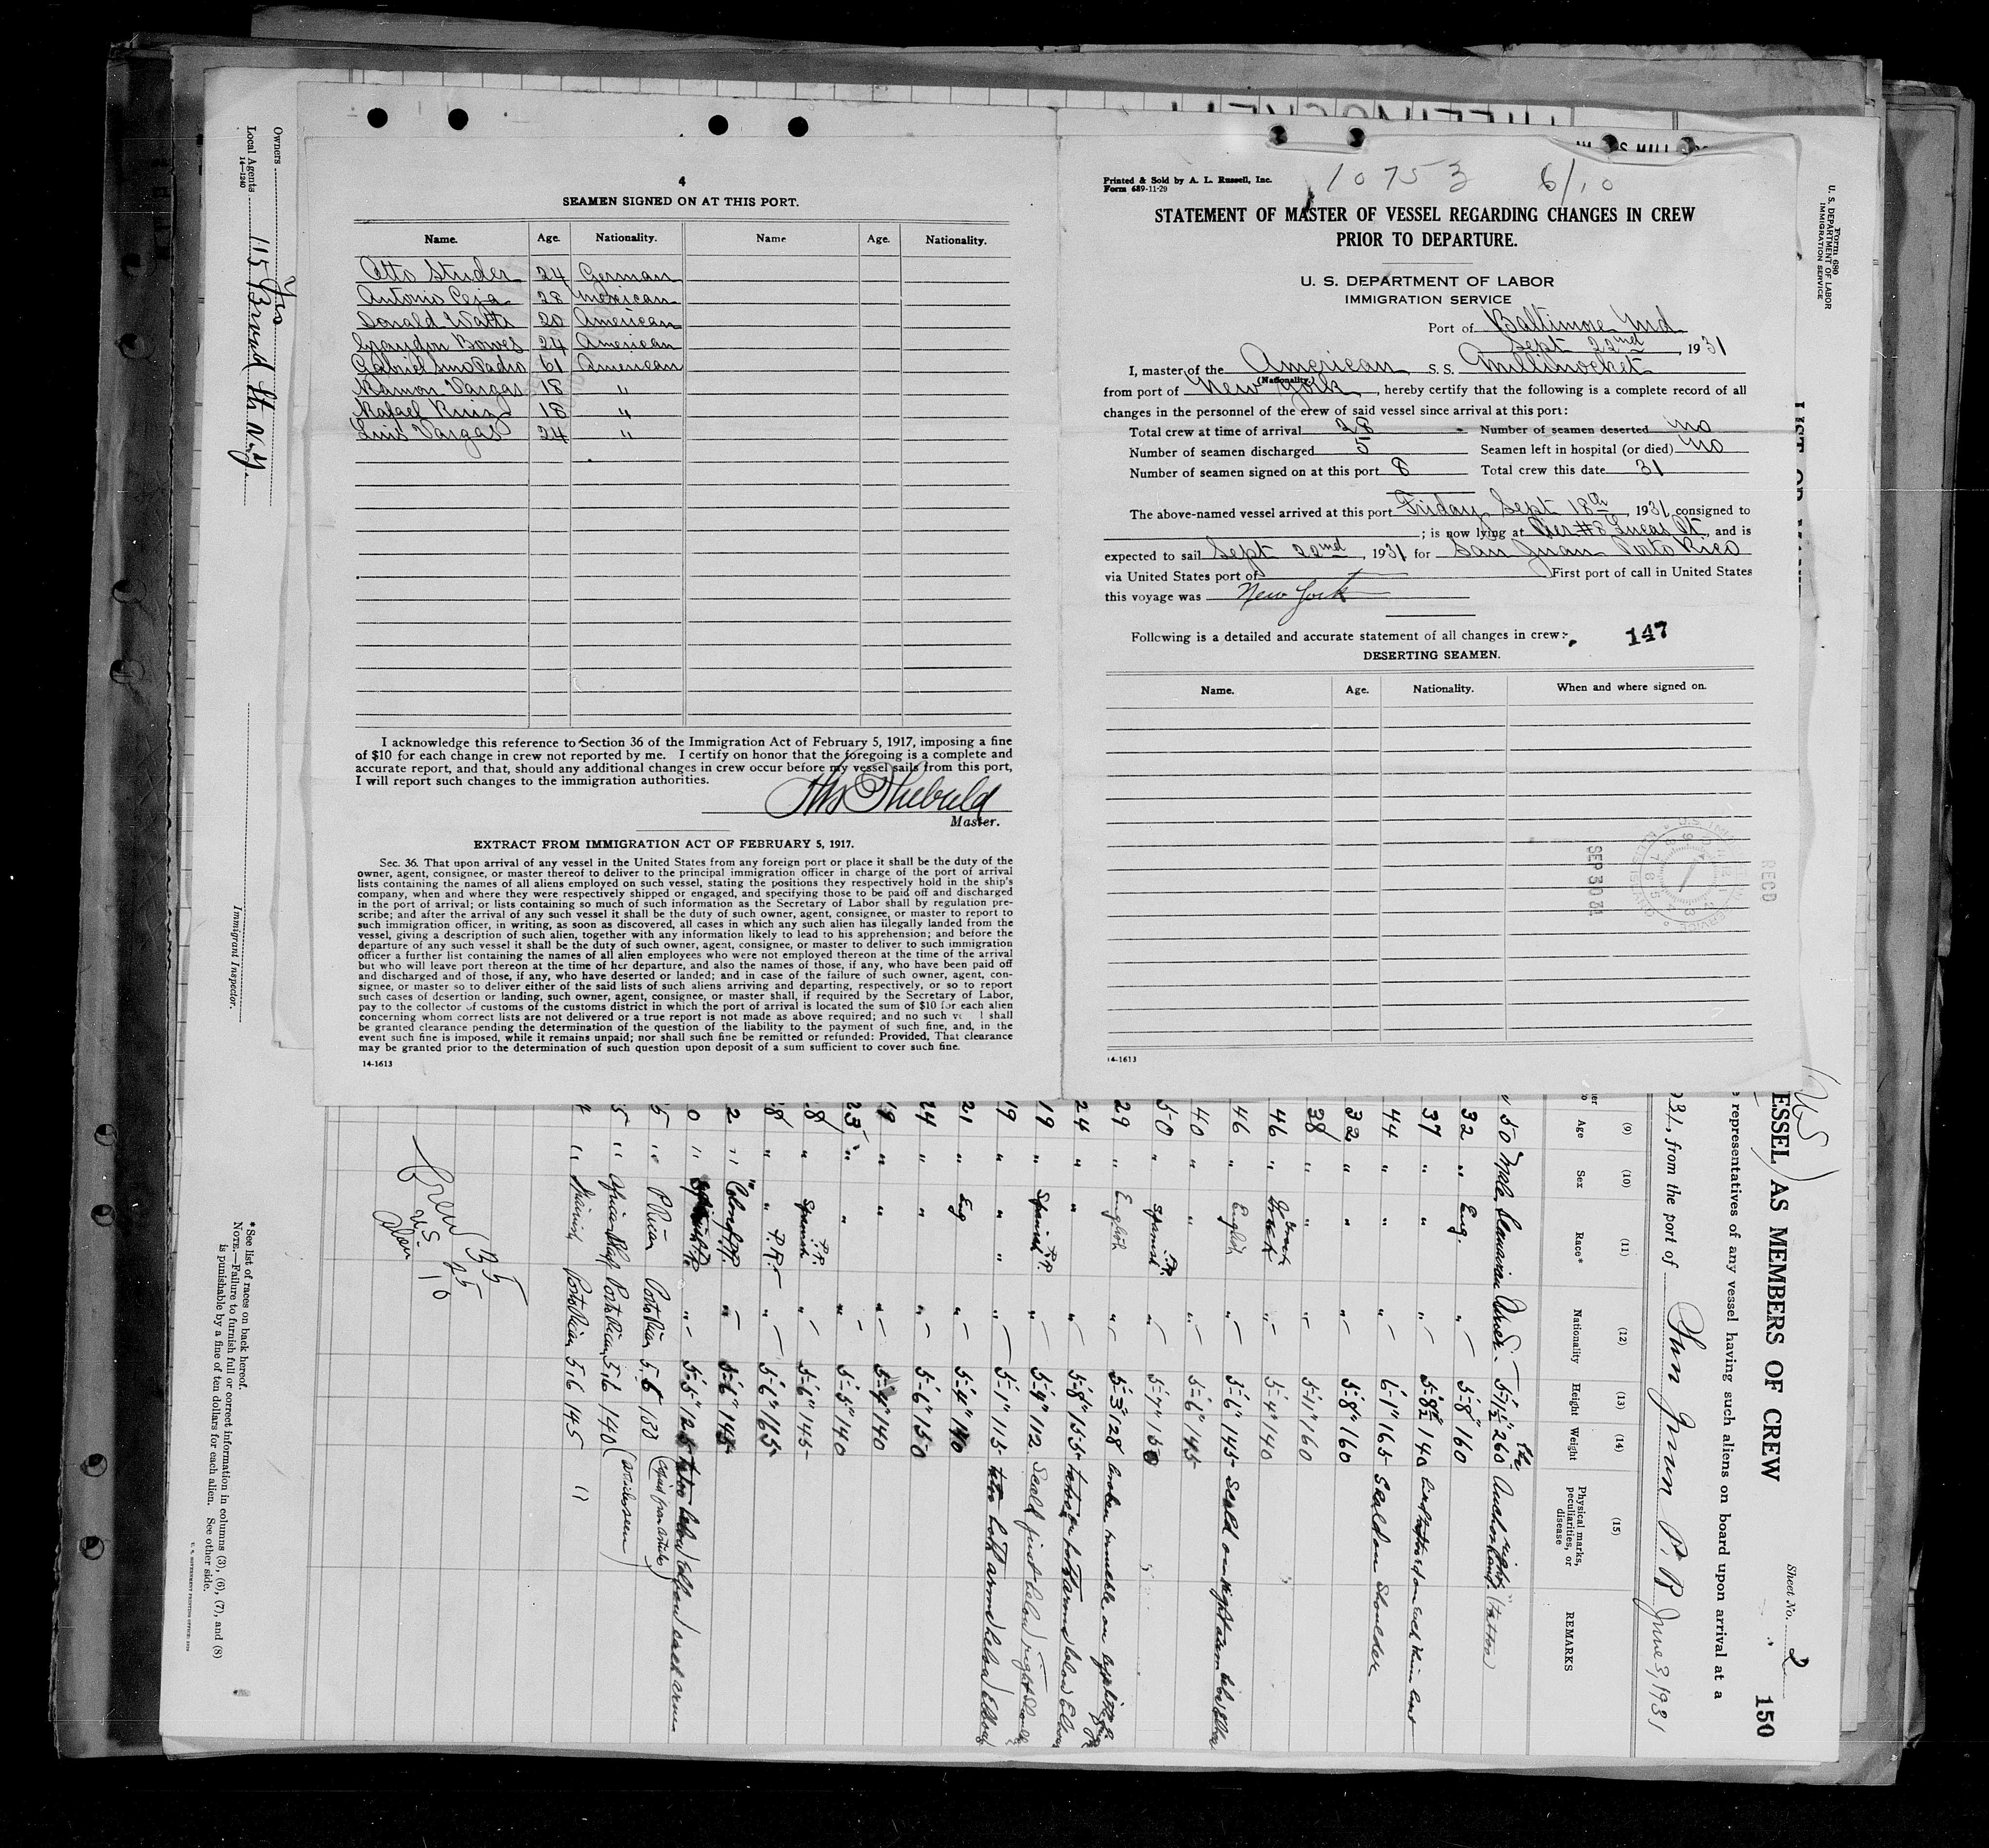 4
SEAMEN SIGNED ON AT THIS PORT.
Name. Age. Nationality. Name Age. Nationality.
Otto Studer 24 German
Antonio Ceja 28 Mexican
Donald Watts 20 American
Brandon Bowes 24 American
Gabriel 61 American
Ramon Vargas 18 "
Rafael Ruiz 18 "
Luis Vargas 24 "
I acknowledge this reference to Section 36 of the Immigration Act of February 5, 1917, imposing a fine
of $10 for each change in crew not reported by me. I certify on honor that the foregoing is a complete and
accurate report, and that, should any additional changes in crew occur before my vessel sails from this port,
I will report such changes to the immigration authorities.
Master.
EXTRACT FROM IMMIGRATION ACT OF FEBRUARY 5, 1917.
Sec. 36. That upon arrival of any vessel in the United States from any foreign port or place it shall be the duty of the
owner, agent, consignee, or master thereof to deliver to the principal immigration officer in charge of the port of arrival
lists containing the names of all aliens employed on such vessel, stating the positions they respectively hold in the ship's
company, when and where they were respectively shipped or engaged, and specifying those to be paid off and discharged
in the port of arrival; or lists containing so much of such information as the Secretary of Labor shall by regulation pre-
scribe; and after the arrival of any such vessel it shall be the duty of such owner, agent, consignee, or master to report to
such immigration officer, in writing, as soon as discovered, all cases in which any such alien has illegally landed from the
vessel, giving a description of such alien, together with any information likely to lead to his apprehension; and before the
departure of any such vessel it shall be the duty of such owner, agent, consignee, or master to deliver to such immigration
officer a further list containing the names of all alien employees who were not employed thereon at the time of the arrival
but who will leave port thereon at the time of her departure, and also the names of those, if any, who have been paid off
and discharged and of those, if any, who have deserted or landed; and in case of the failure of such owner, agent, con-
signee, or master so to deliver either of the said lists of such aliens arriving and departing, respectively, or so to report
such cases of desertion or landing, such owner, agent, consignee, or master shall, if required by the Secretary of Labor,
pay to the collector of customs of the customs district in which the port of arrival is located the sum of $10 for each alien
concerning whom correct lists are not delivered or a true report is not made as above required; and no such ve l shall
be granted clearance pending the determination of the question of the liability to the payment of such fine, and, in the
event such fine is imposed, while it remains unpaid; nor shall such fine be remitted or refunded: Provided, That clearance
may be granted prior to the determination of such question upon deposit of a sum sufficient to cover such fine.
14-1613
Printed & Sold by A. L. Russell, Inc.
Form 689-11-29
10753 6/10
STATEMENT OF MASTER OF VESSEL REGARDING CHANGES IN CREW
PRIOR TO DEPARTURE.
U. S. DEPARTMENT OF LABOR
IMMIGRATION SERVICE
Port of Baltimore Md
Sept 22nd, 1931
I, master of the American S. S. Millinocket
(Nationality.)
from port of New York, hereby certify that the following is a complete record of all
changes in the personnel of the crew of said vessel since arrival at this port:
Total crew at time of arrival 28 Number of seamen deserted no
Number of seamen discharged 5 Seamen left in hospital (or died) no
Number of seamen signed on at this port 8 Total crew this date 31
The above-named vessel arrived at this port Friday Sept 18th, 1931, consigned to
; is now lying at Pier #8 Lucas Pt., and is
expected to sail Sept 22nd, 1931 for San Juan Porto Rico
via United States port of First port of call in United States
this voyage was New York
Following is a detailed and accurate statement of all changes in crew:
147
DESERTING SEAMEN.
Name. Age. Nationality. When and where signed on.
SEP 30 31
RECD
14-1613
Owners
Local Agents 115 Broad St. N.Y.
14-1240
Immigrant Inspector.
Form 680
U. S. DEPARTMENT OF LABOR
IMMIGRATION SERVICE
Sheet No. 2
150
ESSEL) AS MEMBERS OF CREW
representatives of any vessel having such aliens on board upon arrival at a
from the port of San Juan P. R. June 3, 1931
(9) (10) (11) (12) (13) (14) (15)
Age Sex Race* Nationality Height Weight Physical marks, peculiarities, or disease REMARKS
50 Male Amer. 5-7½" 260 Anchor right hand (tattoo)
32 " Eng. " 5-8" 160
37 " " 5-8½ 140
44 " " 6-1" 165 Scald on Shoulder
32 " " 5-8" 160
38 " " 5-11" 160
46 " Greek " 5-4" 140
46 " English " 5-6" 145 Scald on right arm below Elbow
40 " " 5-6" 145
50 " Spanish P.R. " 5-7" 150
29 " English " 5-3" 128
24 " " 5-8" 155 tattoo on both arms below Elbow
19 " Spanish P.R. " 5-4" 112
19 " " " 5-1" 113 tattoo both arms below Elbow
21 " Eng " 5-4" 140
24 " " 5-6" 150
19 " " 5-4" 140
23 " " 5-5" 140
8 " Spanish P.R. " 5-6" 145
8 " P.R. " 5-6" 165
2 " " 5-6" 145
0 " " 5-5" 125 tattoo below Elbow each arm
5 " P Rican Porto Rican 5.6 130
5 " African Blk Porto Rican 5.6 140
" Spanish Porto Rican 5.6 145 "
Crew 35
US 25
Alien 10
*See list of races on back hereof.
NOTE.—Failure to furnish full or correct information in columns (3), (6), (7), and (8)
is punishable by a fine of ten dollars for each alien. See other side.
U. S. GOVERNMENT PRINTING OFFICE